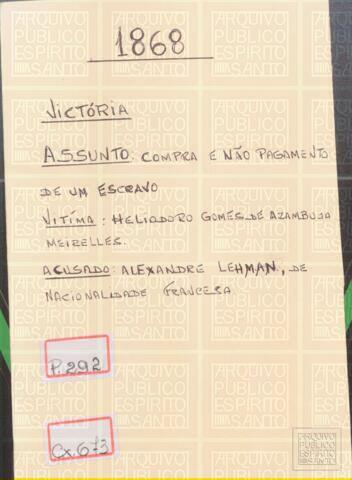 1868
VICTÓRIA
ASSUNTO: COMPRA E NÃO PAGAMENTO
DE UM ESCRAVO
VITIMA: HELIADORO GOMES DE AZAMBUJA
MEIRELLES.
ACUSADO: ALEXANDRE LEHMAN, DE
NACIONALIDADE FRANCESA
P.292
Cx.673
ARQUIVO
PÚBLICO
ESPÍRITO
SANTO